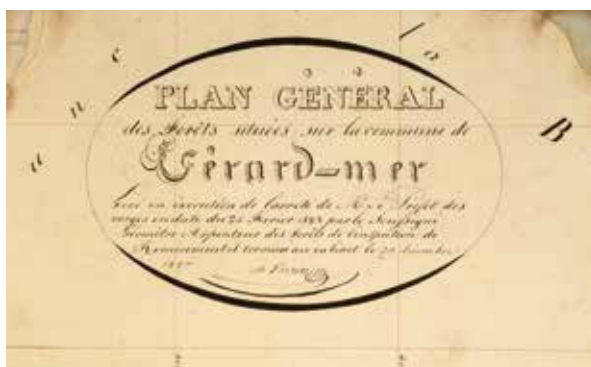 PLAN GÉNÉRAL
des Forêts situées sur la commune de
Gérard-mer
en exécution de l'arrêté de Mr. le Préfet des
vosges en date du 25 Février par le Soussigné
Géomètre Arpenteur des Forêts de l'inspection de
Remiremont et terminé au cabinet le décembre
B